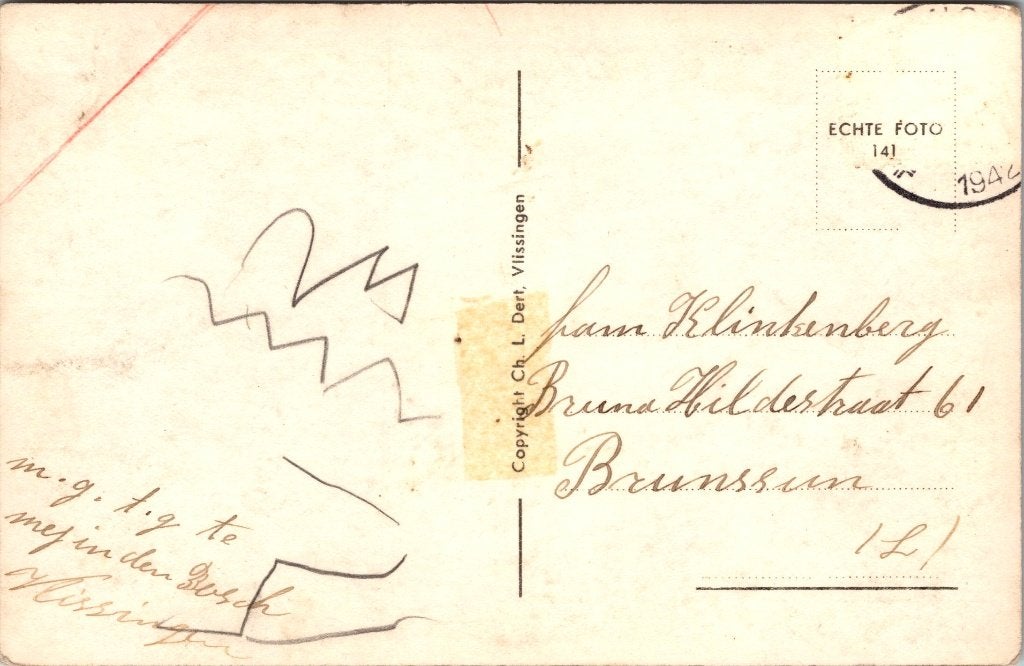 ECHTE FOTO
141
1942
Copyright Ch. L. Dert, Vlissingen
fam Klinkenberg
Bruna Hildestraat 61
Brunssum
(L)
m. g. t. g te
mej in den Bosch
Vlissingen